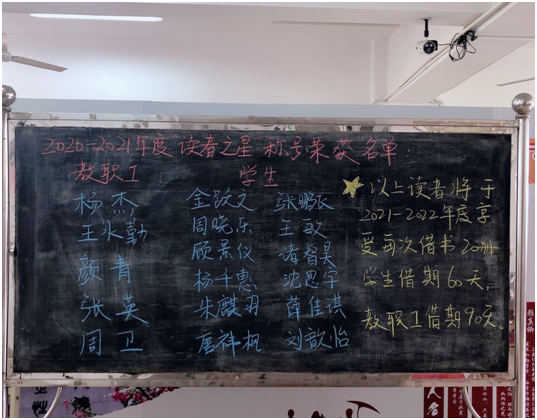 2020-2021年度读者之星称号荣获名单:
教职工 学生
杨杰 金跃文 张鹏辰
王永勤 周晓乐 王政
颜青 顾景仪 诸睿昊
张英 杨千惠 沈思宇
周卫 朱麒羽 薛佳淇
唐祥枫 刘歆怡
以上读者将于
2021-2022年度享
受每次借书20册
学生借期60天,
教职工借期90天。